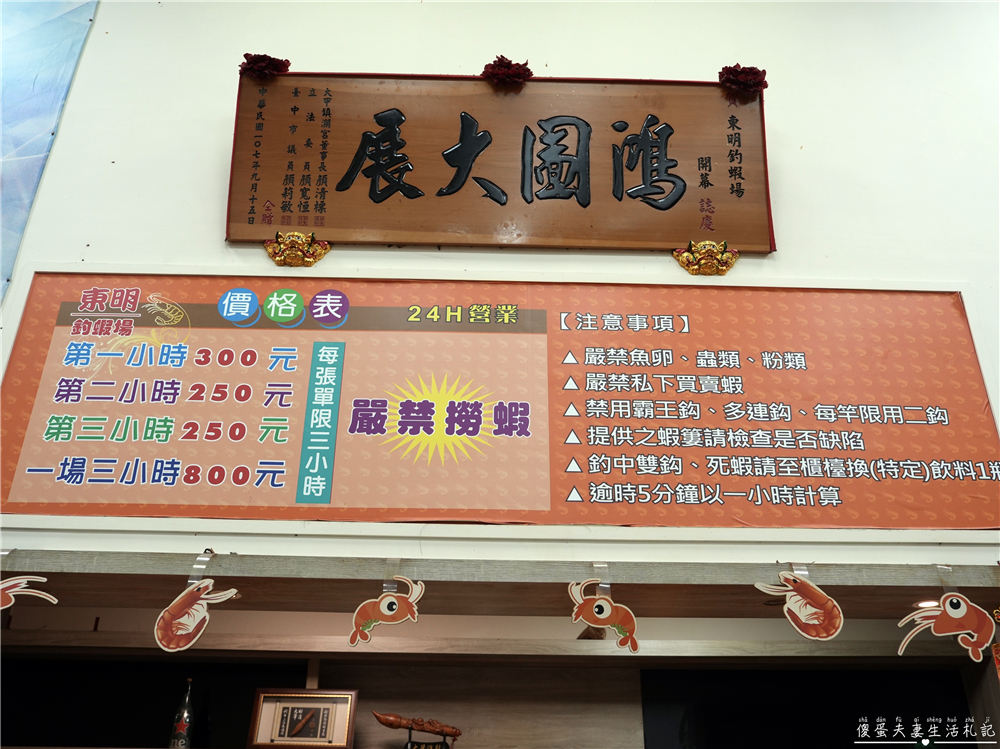 賀
東明釣蝦場
開幕 誌慶
鴻圖大展
大甲鎮瀾宮董事長顏清標
立法委員顏寬恒
臺中市議員顏莉敏
仝賀
中華民國一〇七年九月十五日
東明
釣蝦場
價格表
24H營業
第一小時300元
第二小時250元
第三小時250元
一場三小時800元
每張單限三小時
嚴禁撈蝦
【注意事項】
▲嚴禁魚卵、蟲類、粉類
▲嚴禁私下買賣蝦
▲禁用霸王鈎、多連鈎、每竿限用二鈎
▲提供之蝦簍請檢查是否缺陷
▲釣中雙鈎、死蝦請至櫃檯換(特定)飲料1瓶
▲逾時5分鐘以一小時計算
shǎ dàn fū qī shēng huó zhá jì
傻蛋夫妻生活札記